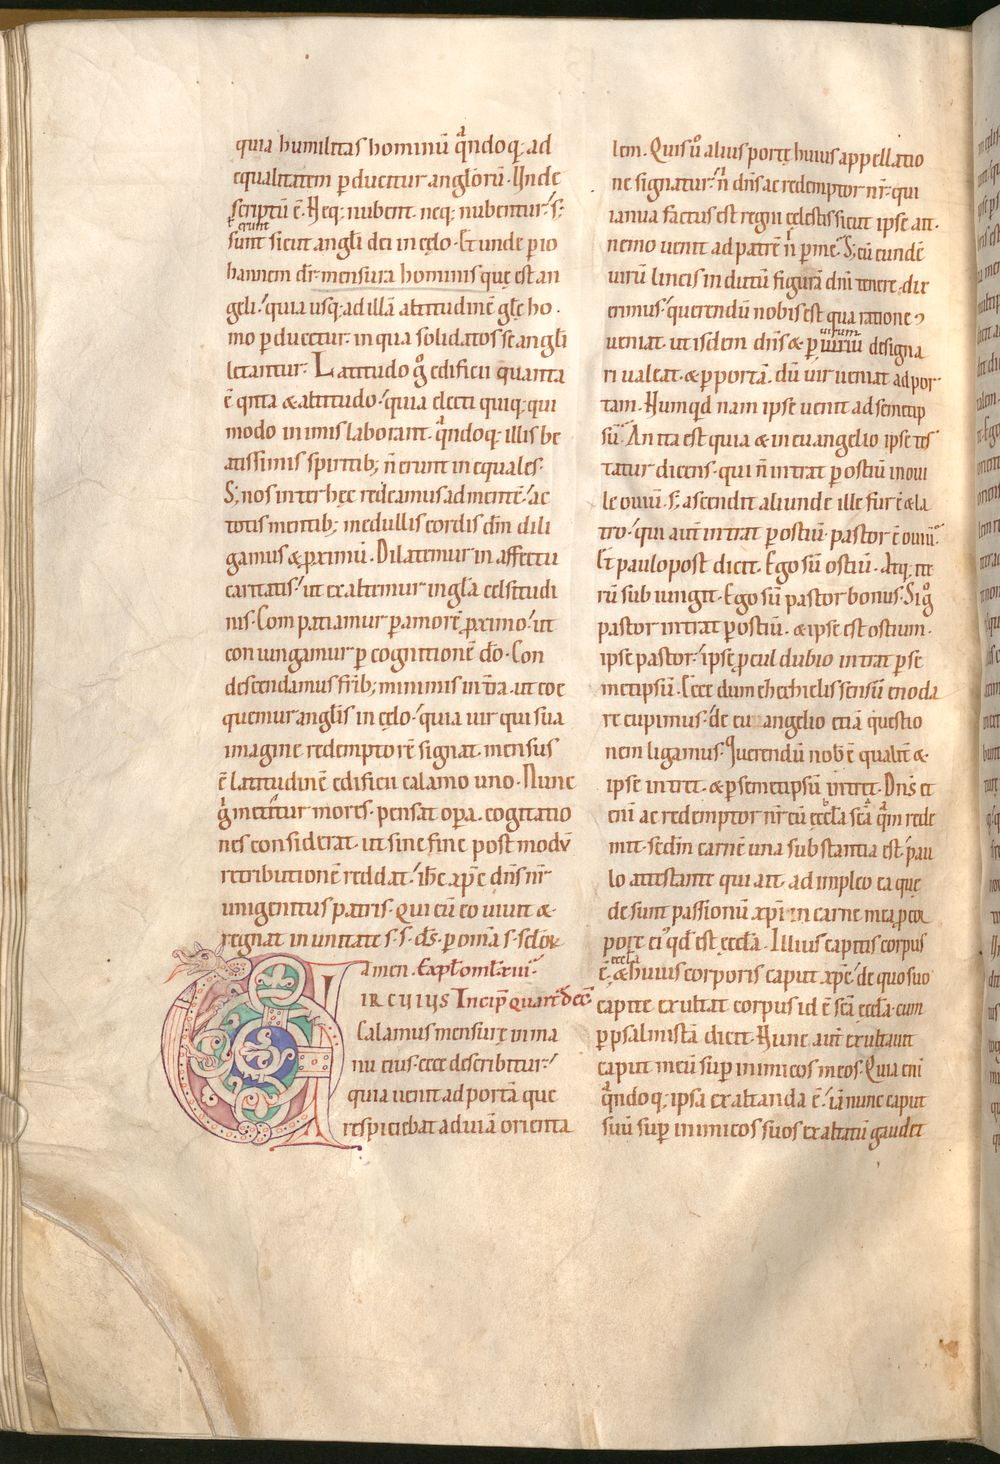 quia humilitas hominū qͣndoq; ad
equalitatem ꝑducitur angl̄orū. Unde
scriptū ē. Neq; nubent. neq; nubentur. s;
erunt
sunt sicut angl̄i dei in cęlo. Et unde ꝑ io
hannem dr̄. mensura hominis quę est an
geli. quia usq; ad illā altitudinē glę ho
mo ꝑducetur. in qua solidatos se angl̄i
lętantur. Latitudo g̊ edificii quanta
ē q̄nta & altitudo. quia electi quiq; qui
modo in imis laborant. qͣndoq; illis be
atissimis spiritib; n̄ erunt inequales.
S; nos inter hęc redeamus ad mentē. ac
totis mentib; medullis cordis dm̄ dili
gamus & ꝓximū. Dilatemur in affectu
caritatis. ut exaltemur in gl̄a celsitudi
nis. Compatiamur ꝑ amorē ꝓximo. ut
coniungamur ꝑ cognitionē dō. Con
descendamus frīb; minimis in tr̄a. ut coę
quemur angl̄is in cęlo. quia uir qui sua
imagine redemptorē signat. mensus
ē latitudinē edificii calamo uno. Nunc
g̊ metitur mores. pensat oꝑa. cogitatio
nes considerat. ut sine fine postmodv̄
retributionē reddat. ih̄c xp̄c dn̄s nr̄
unigenitus patris. qui cū eo uiuit &
regnat in unitate s. s. ds̄. ꝑ om̄a s. sclōꝝ
amen. Expl̄ omł. xiii.
CIRCUIUS Incip̄ quartadec̄
Calamus mensurę in ma
nu eius. ecce describitur.
quia uenit ad portā quę
respiciebat ad uiā orienta
lem. Quis ů alius portę huius appellatio
ne signatur. nͥ dn̄s ac redemptor nr̄. qui
ianua factus est regni cęlestis sicut ipse ait.
nemo uenit ad patrē nͥ ꝑ me. S; cū eundē
uirū lineis indutū figurā dnī tenere dix
erimus. querendū nobis est qua ratione
ueniat. ut isdem dn̄s & ꝑ uirum designa
uirum
ri ualeat. & ꝑ portā. dū uir ueniat ad por
tam. Numqd nam ipse uenit ad semetip
sū. An ita est quia & in euangelio ipse tes
tatur dicens. qui n̄ intrat ꝑ ostiū in oui
le ouiū. s; ascendit aliunde ille fur ē & la
tro. qui aut̄ intrat ꝑ ostiū. pastor ē ouiū.
Et paulo post dicit. Ego sū ostiū. Atq; ite
rū subiungit. Ego sū pastor bonus. Si g̊
pastor intrat ꝑ ostiū. & ipse est ostium.
ipse pastor. ipse ꝓcul dubio intrat ꝑ se
metipsū. Ecce dum ehzechielis sensū enoda
re cupimus. de eu angelio etiā questio
nem ligamus. Querendū nob̄ ē qualit̄ &
ipse intret. & ꝑ semetipsū intret. Dn̄s et
enī ac redemptor nr̄ cū ęccl̄a scā quͣm rede
mit. scdm̄ carnē una substantia est. pau
lo attestante qui ait. adimpleo ea quę
desunt passionū xp̄i in carne mea ꝓ cor
pore ei᾽ qd̄ est ęccl̄a. Illius capitis corpus
ęccl̄a
ē. & huius corporis caput xp̄c. de quo suo
capite exultat corpus id ē scā ęccl̄a. cum
ꝑ psalmistā dicit. Nunc aut̄ exultauit
caput meū suꝑ inimicos meos. Quia enī
qͣndoq; ipsa exaltanda ē. iā nunc caput
suū suꝑ inimicos suos exaltatū gaudet